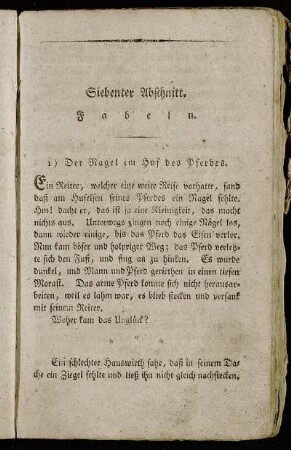 Siebenter Abschnitt.
Fabeln.
1) Der Nagel im Huf des Pferdes.
Ein Reiter, welcher eine weite Reise vorhatte, fand
daß am Hufeisen seines Pferdes ein Nagel fehlte.
Hm! dacht er, das ist ja eine Kleinigkeit, das macht
nichts aus. Unterwegs gingen noch einige Nägel los,
dann wieder einige, bis das Pferd das Eisen verlor.
Nun kam böser und holpriger Weg; das Pferd verletz-
te sich den Fuß, und fing an zu hinken. Es wurde
dunkel, und Mann und Pferd geriethen in einen tiefen
Morast. Das arme Pferd konnte sich nicht herausar-
beiten, weil es lahm war, es blieb stecken und versank
mit seinem Reiter.
Woher kam das Unglück?
* * *
Ein schlechter Hauswirth sahe, daß in seinem Da-
che ein Ziegel fehlte und ließ ihn nicht gleich nachstecken.